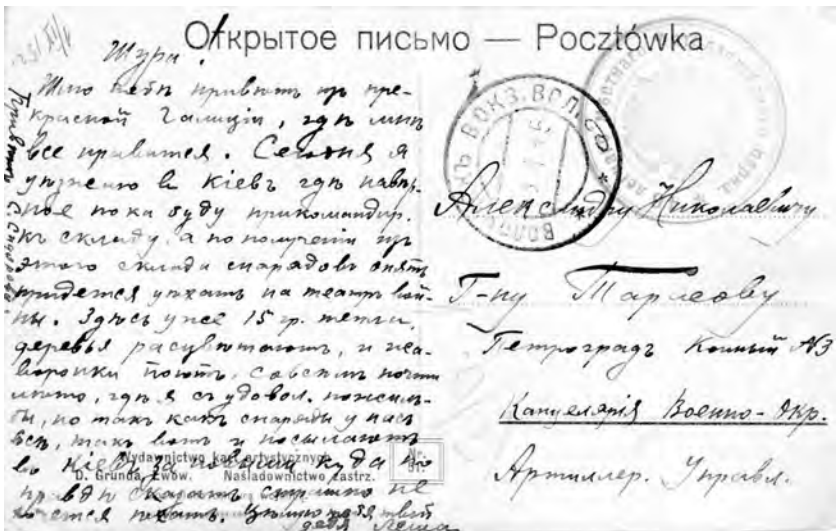 Открытое письмо — Pocztówka
Шура!
Шлю тебѣ привѣтъ изъ пре-
красной Галиціи, гдѣ мнѣ
все нравится. Сегодня я
уѣзжаю въ Кіевъ гдѣ навѣр-
ное пока буду прикомандир.
къ складу, а по полученіи изъ
этого склада снарядовъ опять
придется уѣхать на театръ вой-
ны. Здѣсь уже 15 гр. тепла,
деревья расцвѣтаютъ, и жа-
воронки поютъ, совсѣмъ почти
лѣто, гдѣ я съ удовол. пожилъ-
бы, но такъ какъ снаряды у насъ
всѣ, такъ вотъ и посылаютъ
въ Кіевъ за новыми куда по
правдѣ сказать страшно не
хочется ѣхать. твой
дядя Леша
Привѣтъ С. Сидорова.
ВОКЗ. ВОЛ.
Александру Николаевичу
Г-ну Тарасову
Петроградъ Конный №3
Канцелярія Военно-Окр.
Артиллер. Управл.
Wydawnictwo kart artystycznych
D. Grunda, Lwów. Naśladownictwo zastrz.
Nr.